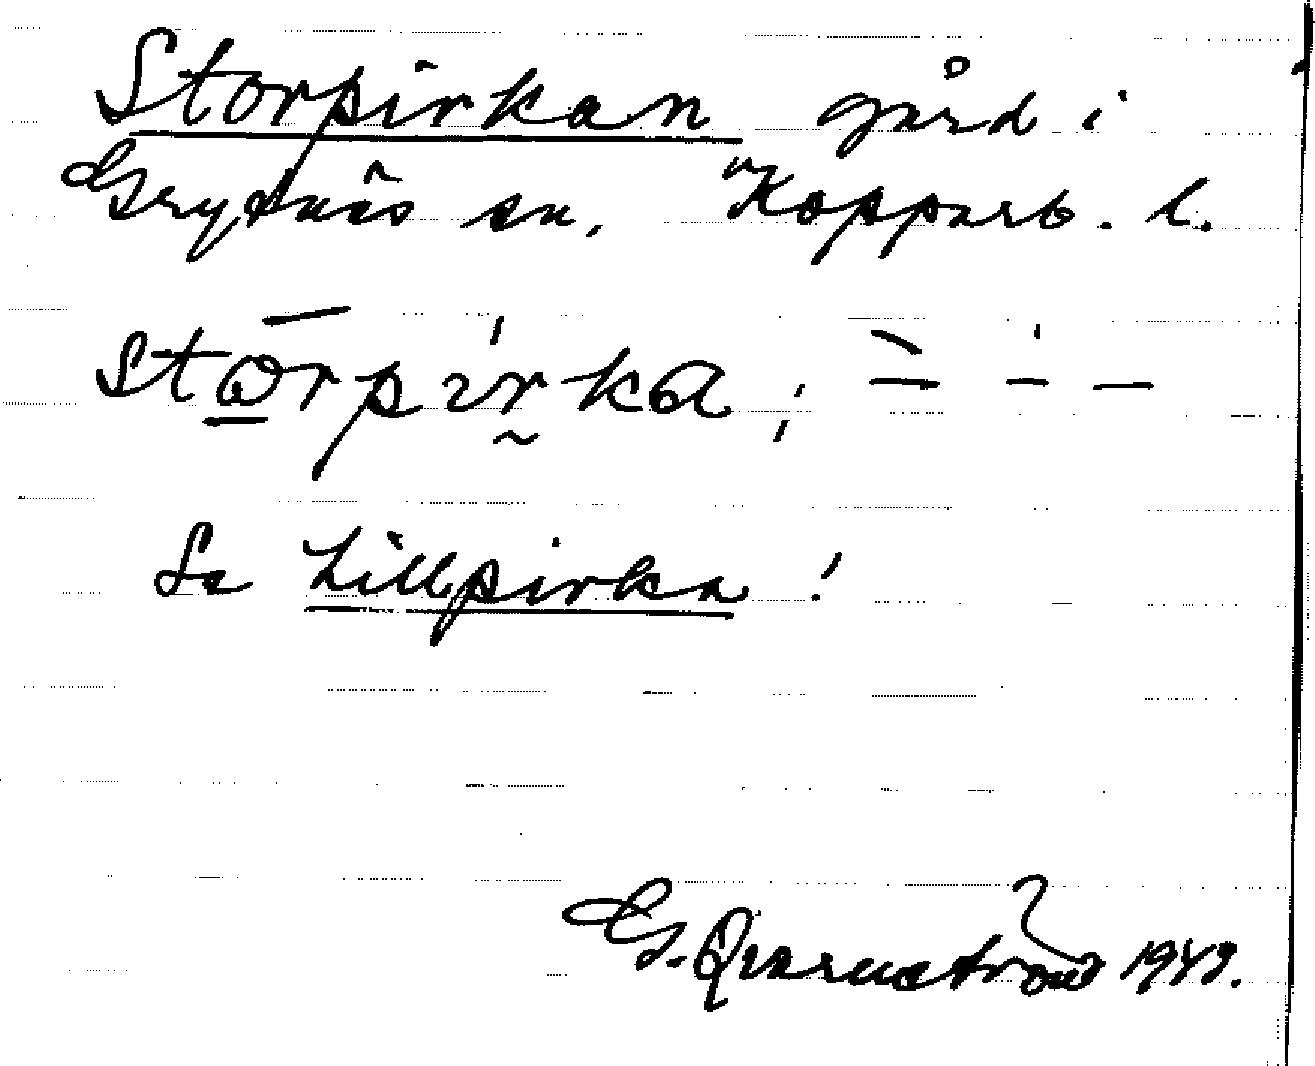 Storpirkan gård i
Grytnäs sn, Kopparb. l.
stōrpìrka;
Se Lillpirka!
G. Qvarnström 1943.